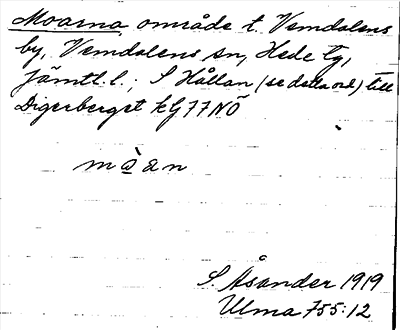 Moarna, område t. Vemdalens
by, Vemdalens sn, Hede tg,
Jämtl. l.; S Hållan (se detta ord) till
Digerberget kfj 77 NÖ
S. Åsander 1919
Ulma 755:12